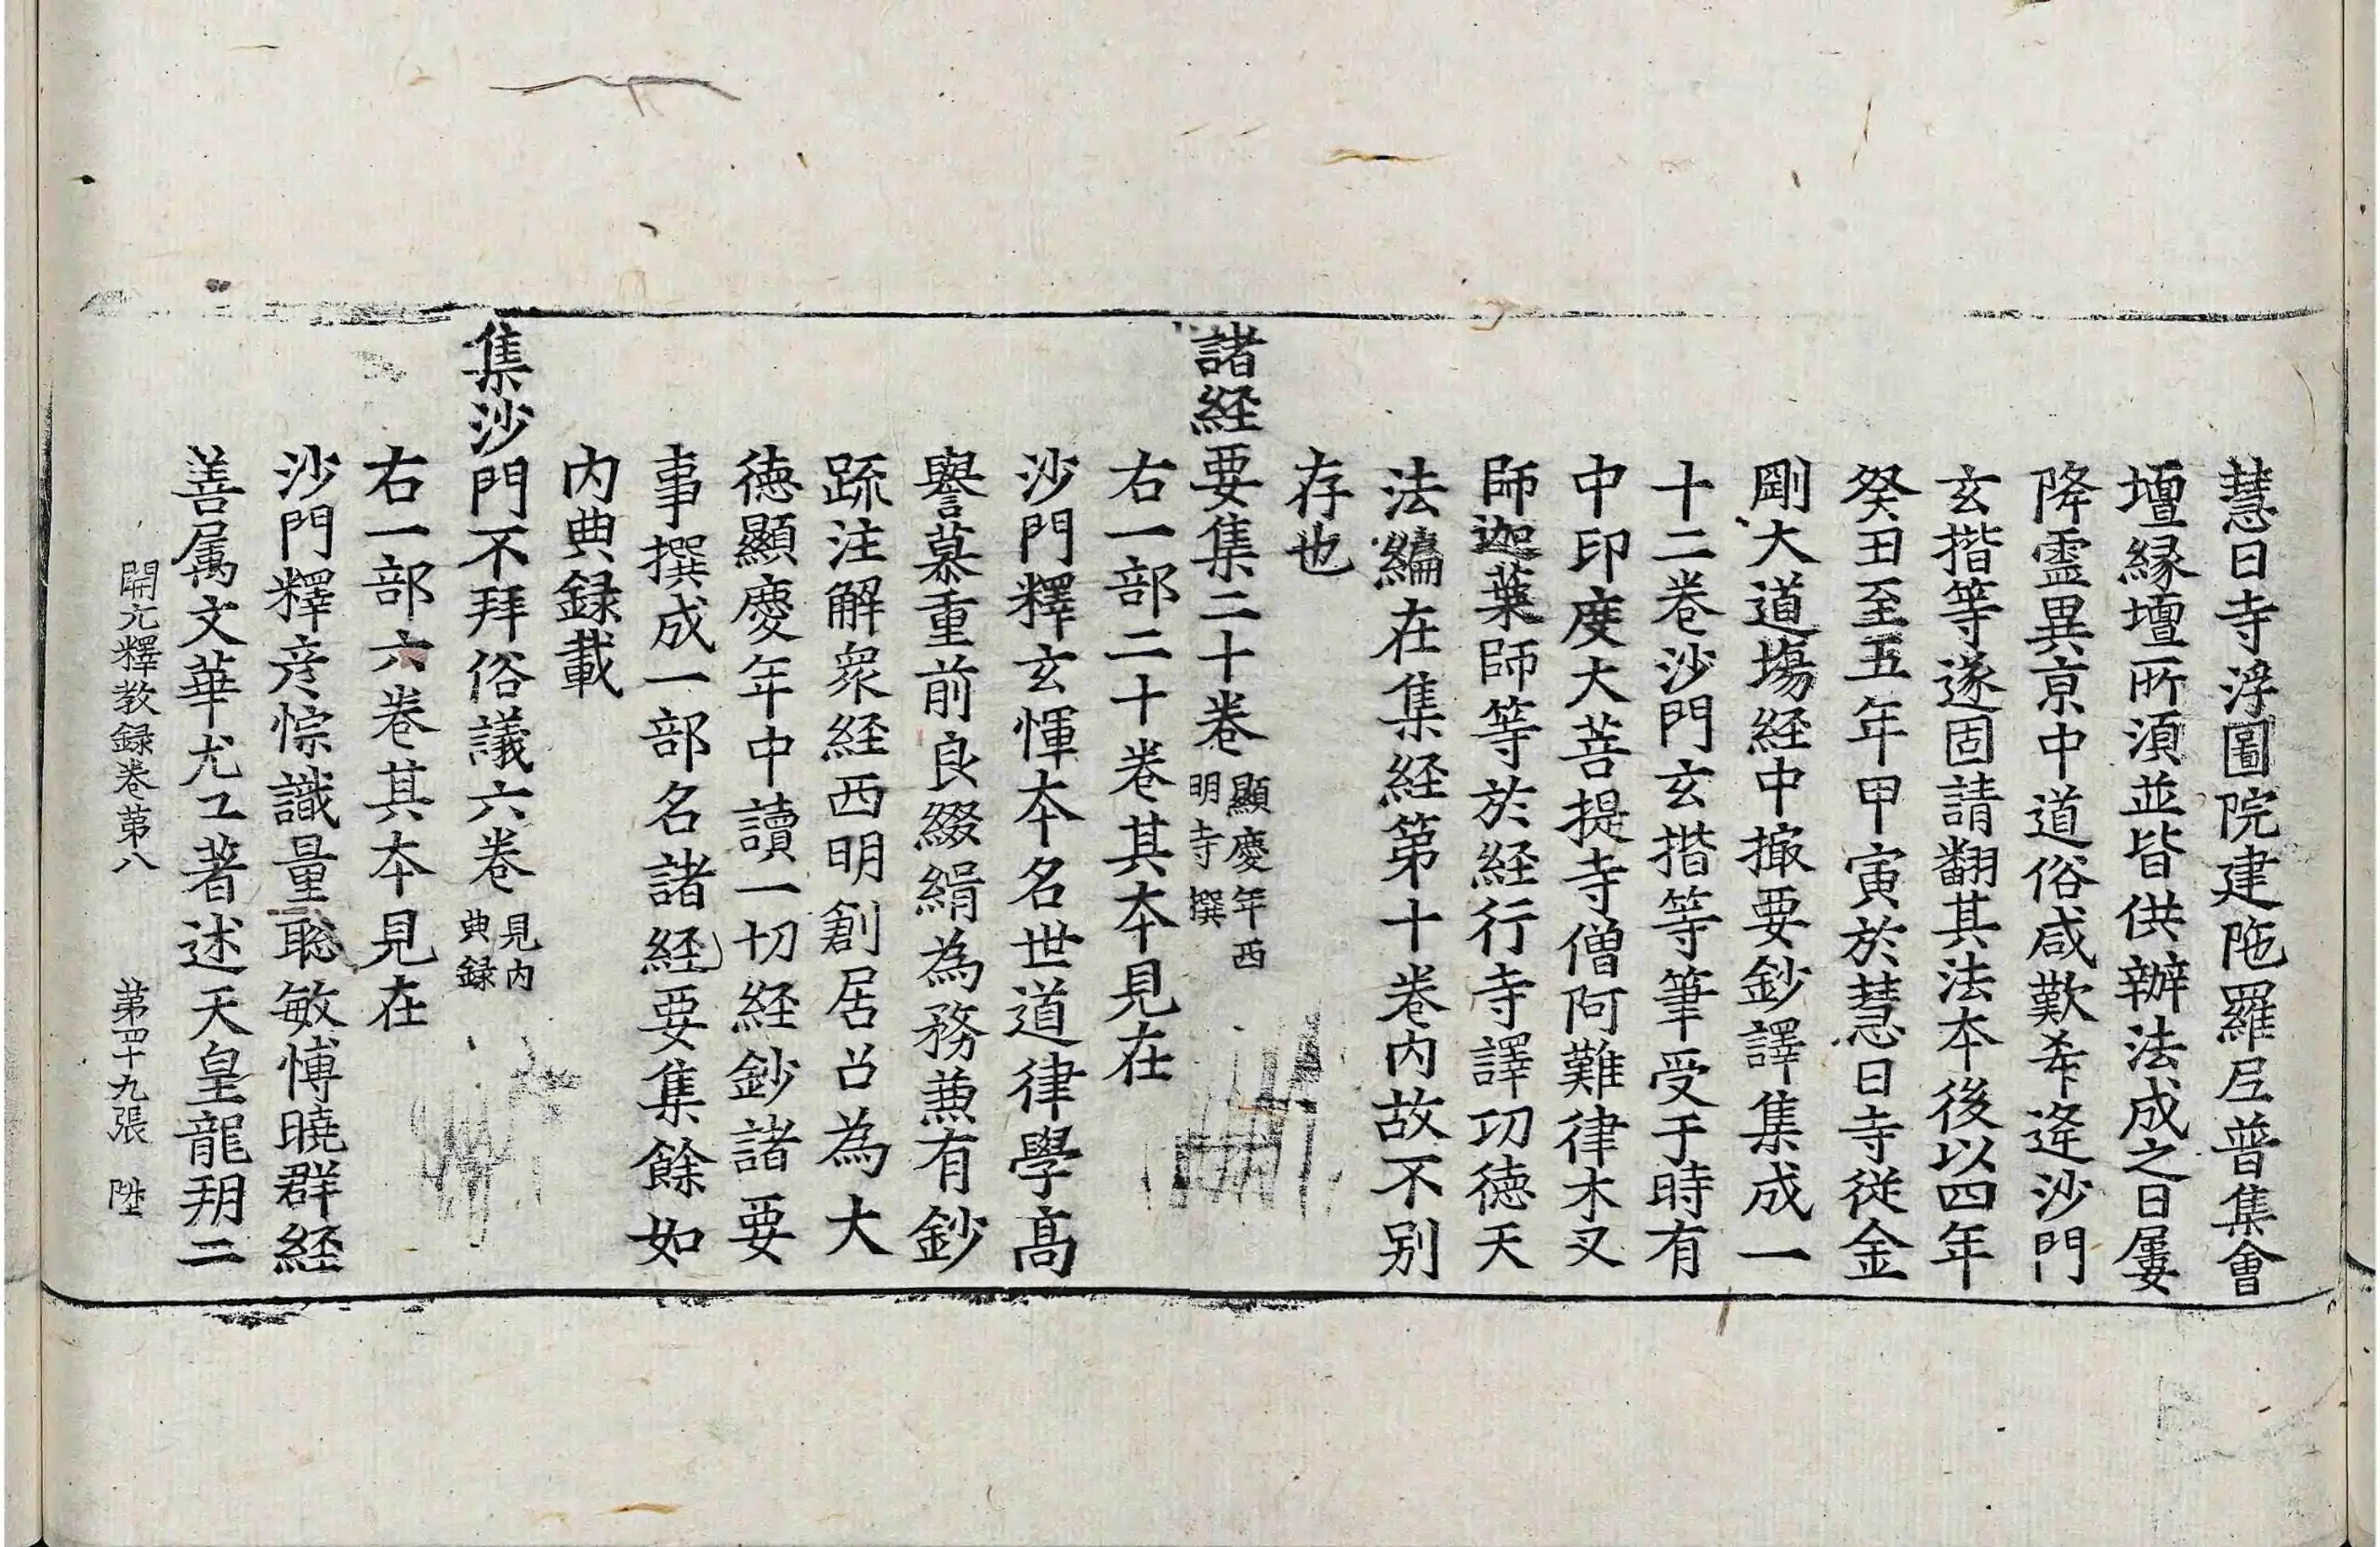 慧日寺浮圖院建陁羅尼普集會
壇縁壇所湏並皆供辦法成之日屢
降靈異京中道俗咸歎希逢沙門
玄揩等遂固請翻其法本後以四年
癸丑至五年甲寅於慧日寺従金
剛大道塲経中撮要鈔譯集成一
十二卷沙門玄揩等筆受于時有
中印度大菩提寺僧阿難律木叉
師迦葉師等於経行寺譯功徳天
法編在集経第十卷内故不別
存也
諸経要集二十卷 顯慶年西明寺撰
右一部二十卷其本見在
沙門釋玄惲本名世道律學髙
譽慕重前良綴緝為務兼有鈔
䟽注解衆経西明創居召為大
徳顯慶年中讀一切経鈔諸要
事撰成一部名諸経要集餘如
内典録載
集沙門不拜俗議六卷 見内典録
右一部六卷其本見在
沙門釋彦悰識量聡敏博曉群経
善属文華尤工著述天皇龍朔二
開元釋教録卷第八 第四十九張 陞